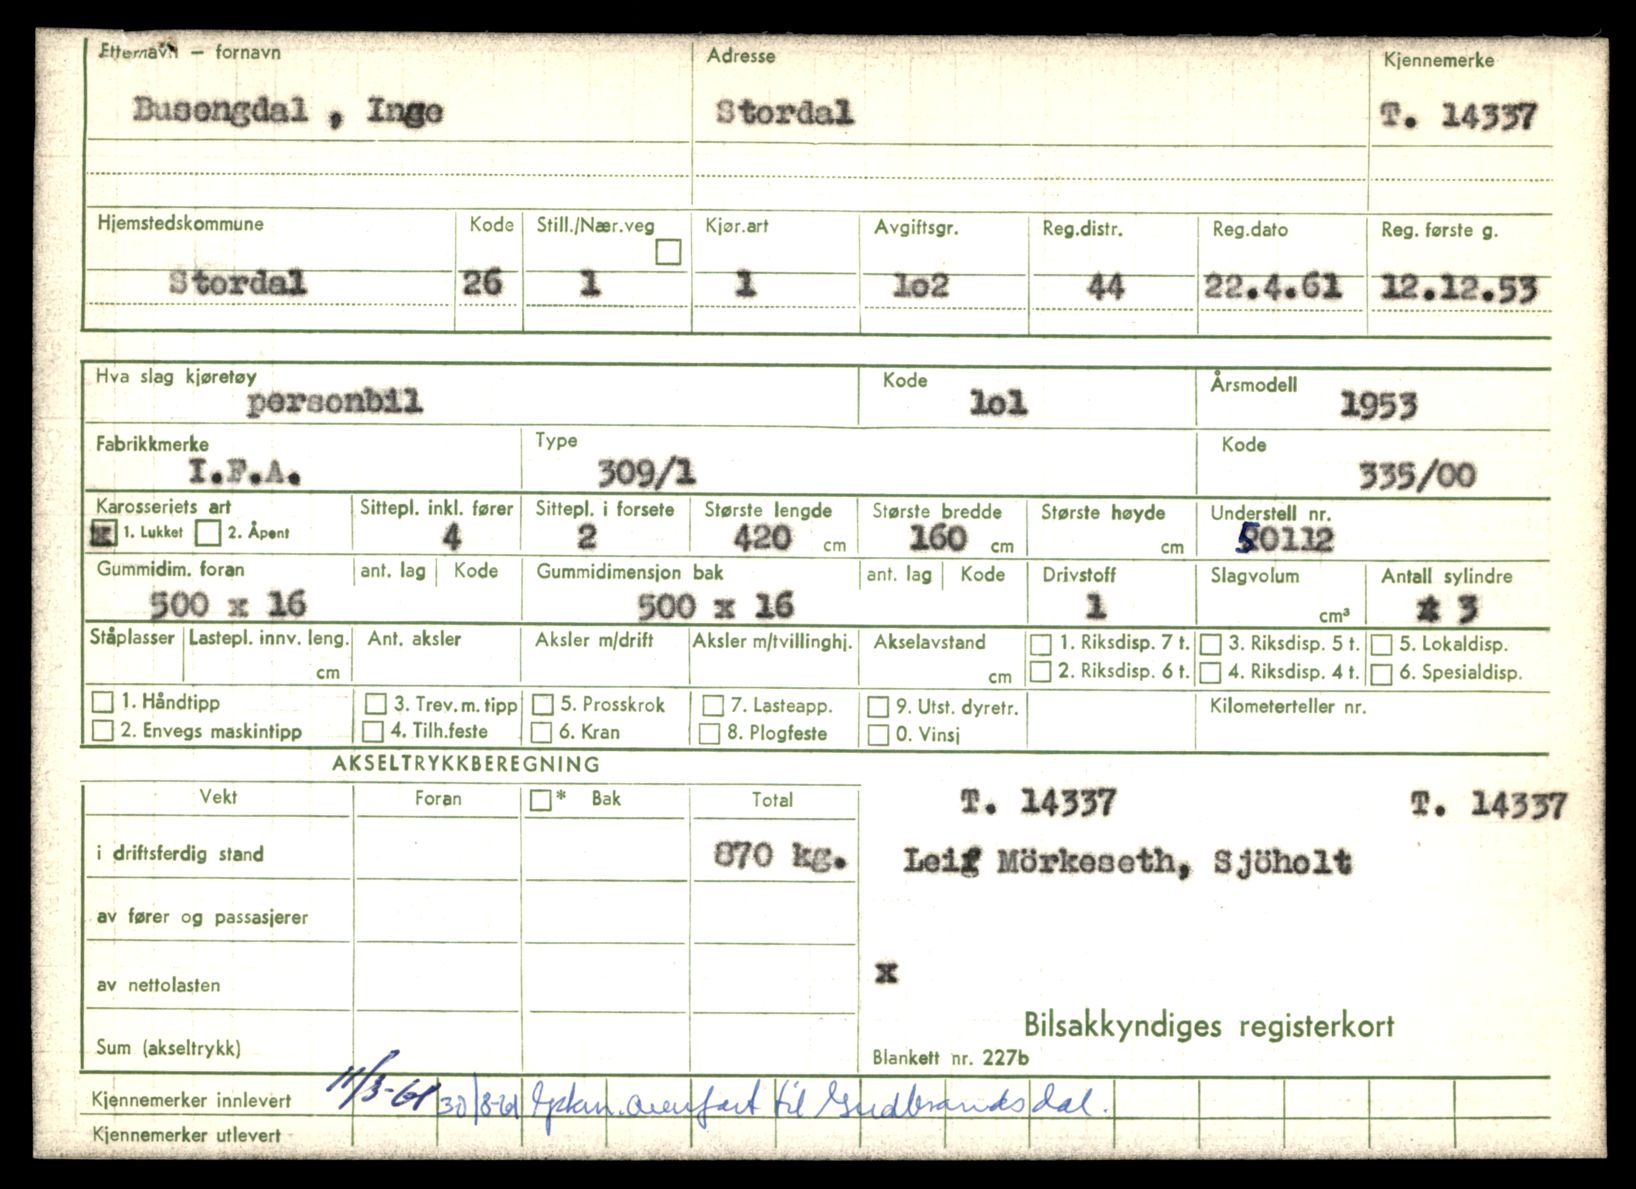 Etternavn – fornavn Adresse Kjennemerke
Busengdal , Inge Stordal T. 14337
Hjemstedskommune Kode Still./Nær.veg Kjør.art Avgiftsgr. Reg.distr. Reg.dato Reg. første g.
Stordal 26 1 1 lo2 44 22.4.61 12.12.53
Hva slag kjøretøy Kode Årsmodell
personbil lol 1953
Fabrikkmerke Type Kode
I.F.A. 309/1 335/00
Karosseriets art Sittepl. inkl. fører Sittepl. i forsete Største lengde Største bredde Største høyde Understell nr.
x 1. Lukket 2. Åpent 4 2 420 cm 160 cm cm 50112
Gummidim. foran ant. lag Kode Gummidimensjon bak ant. lag Kode Drivstoff Slagvolum Antall sylindre
500 x 16 500 x 16 1 cm³ 3
Ståplasser Lastepl. innv. leng. Ant. aksler Aksler m/drift Aksler m/tvillinghj. Akselavstand 1. Riksdisp. 7 t. 3. Riksdisp. 5 t. 5. Lokaldisp.
cm cm 2. Riksdisp. 6 t. 4. Riksdisp. 4 t. 6. Spesialdisp.
1. Håndtipp 3. Trev. m. tipp 5. Prosskrok 7. Lasteapp. 9. Utst. dyretr. Kilometerteller nr.
2. Envegs maskintipp 4. Tilh.feste 6. Kran 8. Plogfeste 0. Vinsj
AKSELTRYKKBEREGNING
Vekt Foran * Bak Total T. 14337 T. 14337
i driftsferdig stand 870 kg. Leif Mörkeseth, Sjöholt
av fører og passasjerer
av nettolasten x
Bilsakkyndiges registerkort
Sum (akseltrykk) Blankett nr. 227b
Kjennemerker innlevert 11/3-61 30/8-61 overført til Gudbrandsdal.
Kjennemerker utlevert